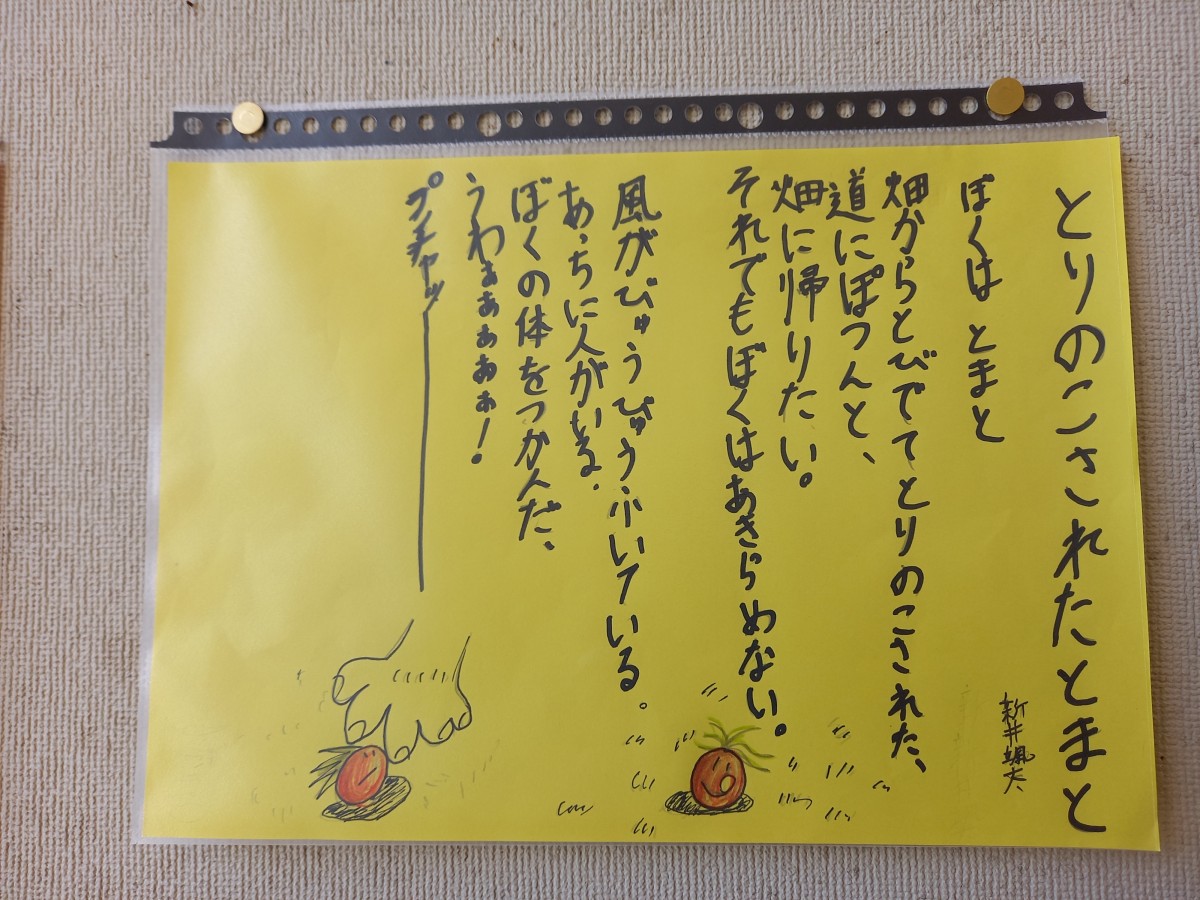 とりのこされたとまと
新井颯太
ぼくは とまと
畑からとびでてとりのこされた、
道にぽつんと、
畑に帰りたい。
それでもぼくはあきらめない。
風がびゅうびゅうふいている。
あっちに人がいる.
ぼくの体をつかんだ、
うわまぁぁぁぁ!
プチャッ――――